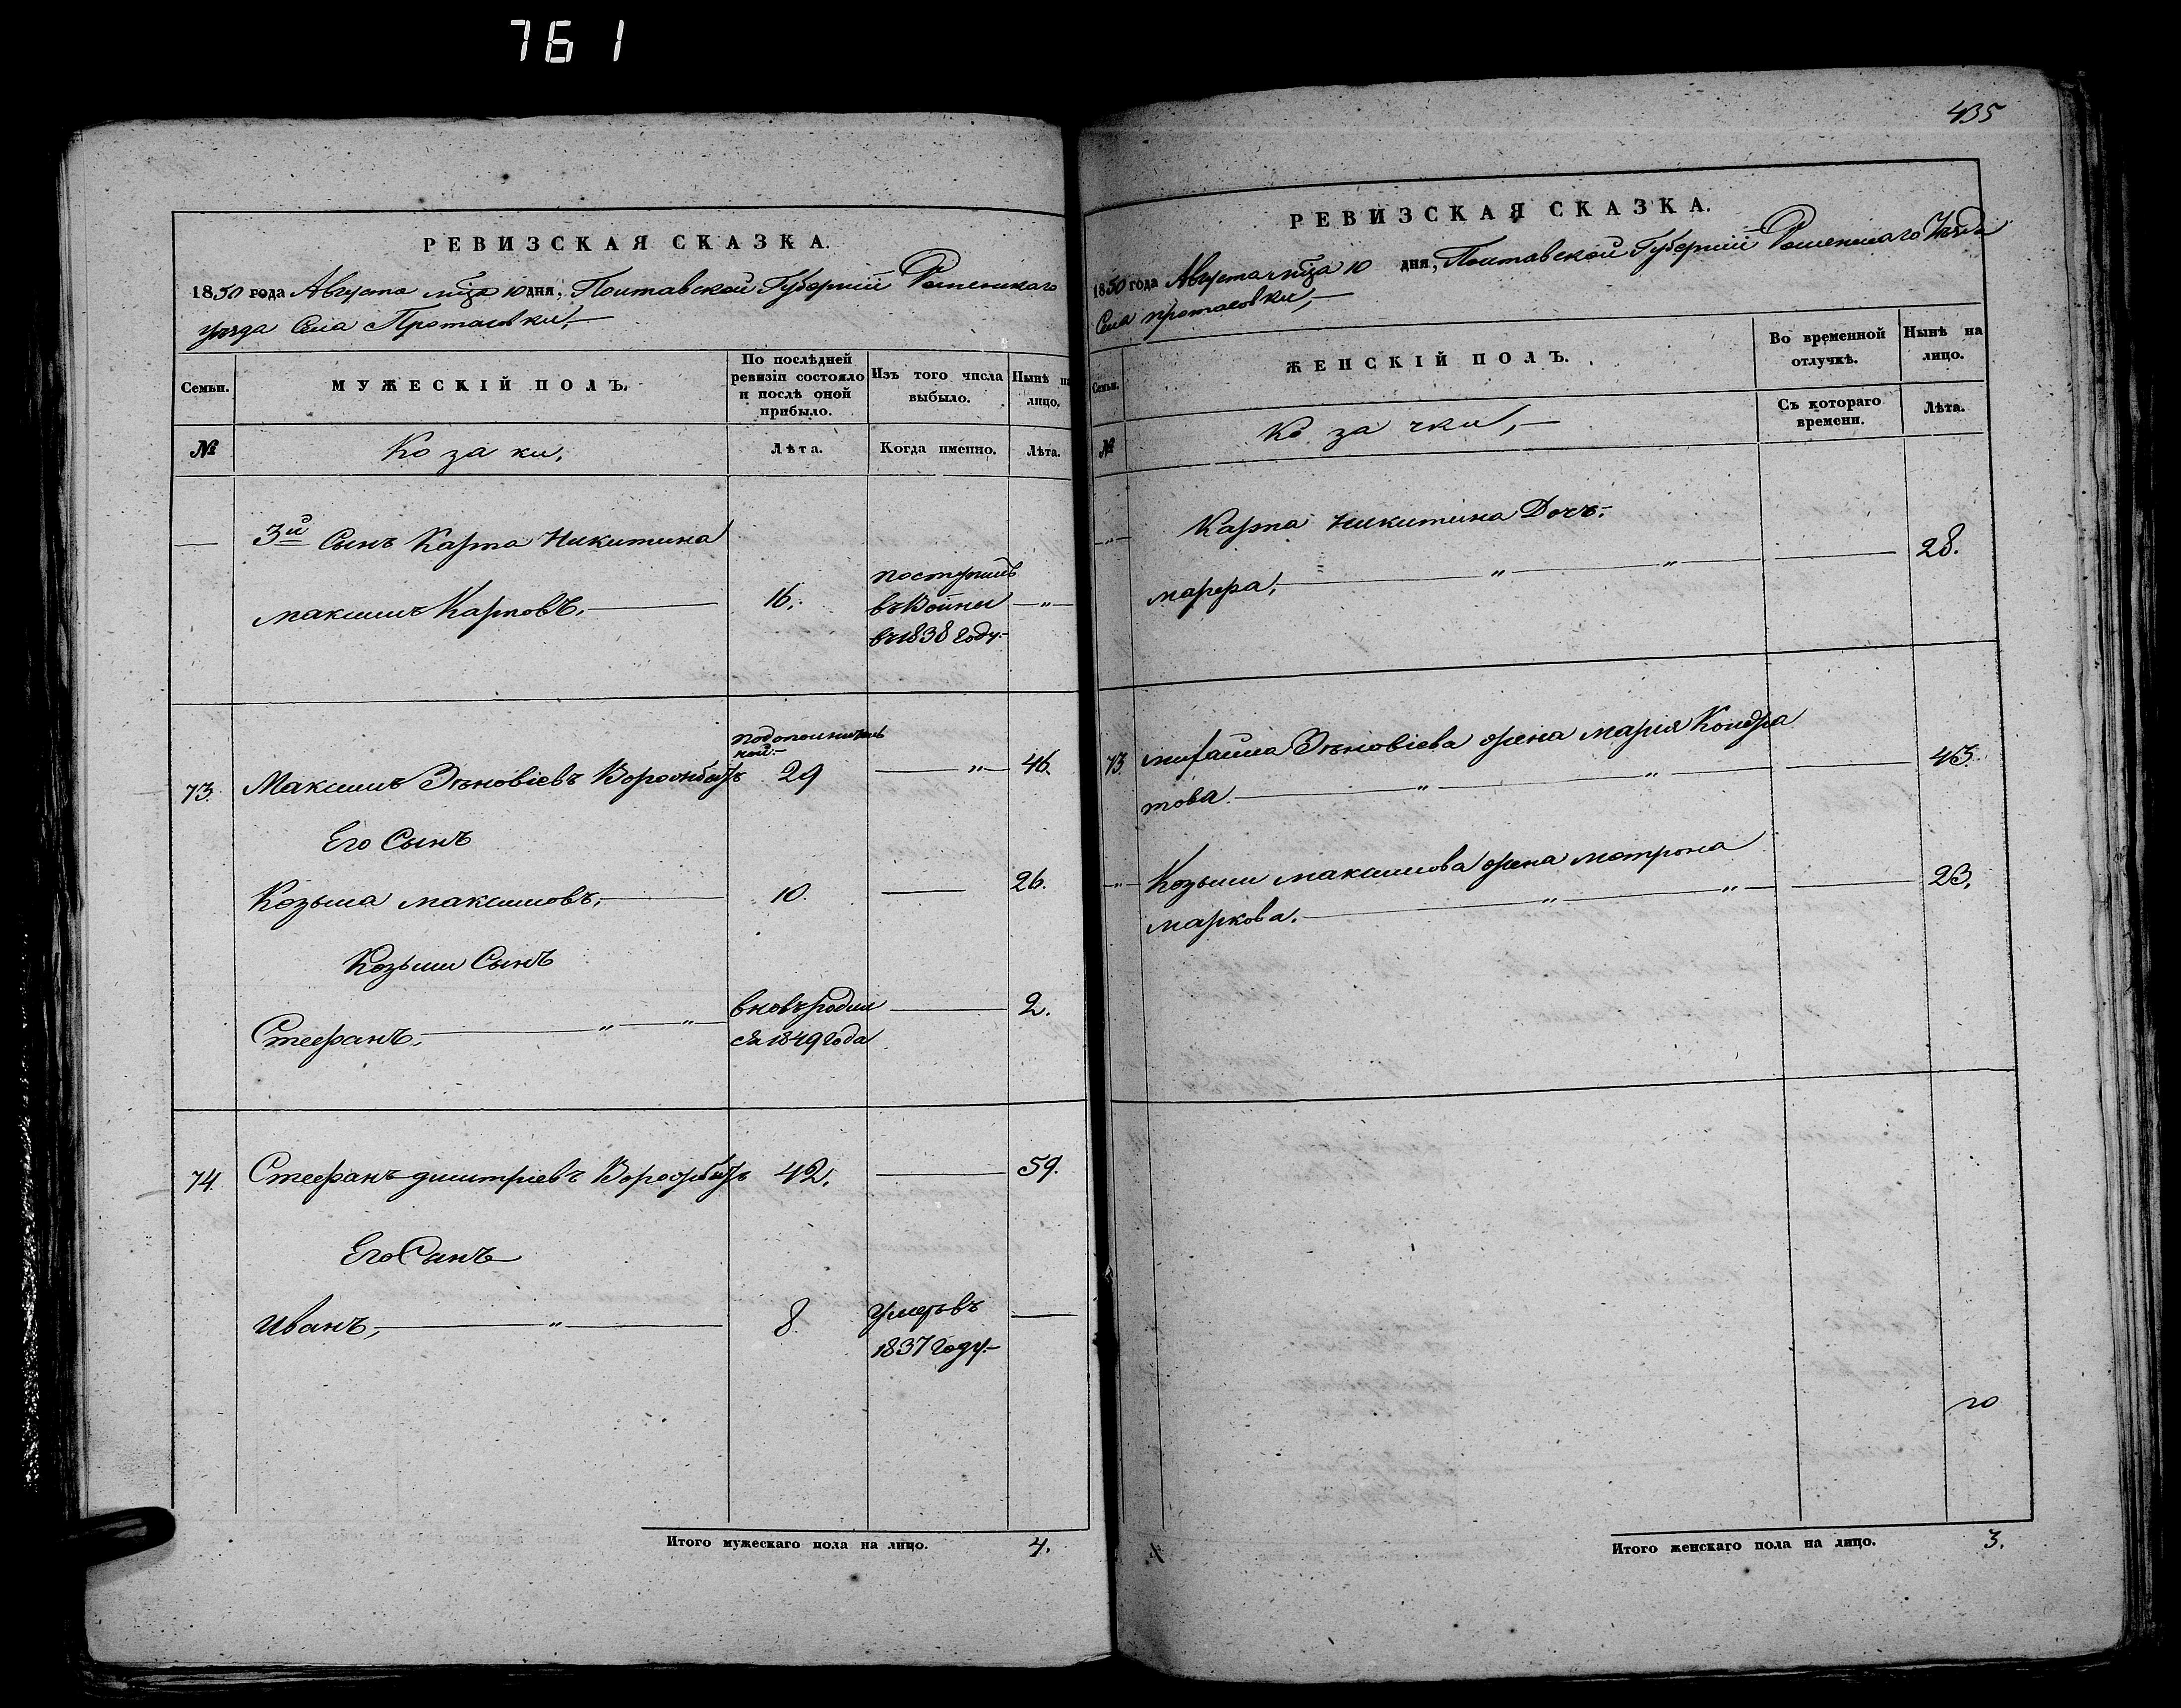 761
РЕВИЗСКАЯ СКАЗКА.
1850 года Августа м͠ца 10 дня, Полтавской Губерніи Роменскаго
уѣзда Села Протасовки,
Семьи.
МУЖЕСКІЙ ПОЛЪ.
По послѣдней ревизіи состояло и послѣ оной прибыло.
Изъ того числа выбыло.
Нынѣ на лицо.
№
Козаки,
Лѣта.
Когда именно.
Лѣта.
3й Сынъ Карпа Никитина
Максимъ Карповъ, 16. поступилъ
въ
въ 1838 году.
73. Максимъ Зѣновіевъ 29 46.
Его Сынъ
Козьма Максимовъ. 10. 26.
Козьми Сынъ
Стефанъ. вновь родил
ся 1849 года 2.
74. Стефанъ Дмитріевъ 42. 59.
Его Сынъ
Иванъ, 8. умеръ въ
1837 году.
Итого мужескаго пола на лицо. 4.
435
РЕВИЗСКАЯ СКАЗКА.
1850 года Августа м͠ца 10 дня, Полтавской Губерніи Роменскаго Уѣзда
Села Протасовки,
Семьи.
ЖЕНСКІЙ ПОЛЪ.
Во временной отлучкѣ.
Нынѣ на лицо.
№
Козачки,
Съ котораго времени.
Лѣта.
Карпа Никитина Дочь.
Марфа, 28.
73. Зѣновіева жена Марія Кондра
това. 43.
Козьми Максимова жена Мотрона
Маркова. 23.
Итого женскаго пола на лицо. 3.